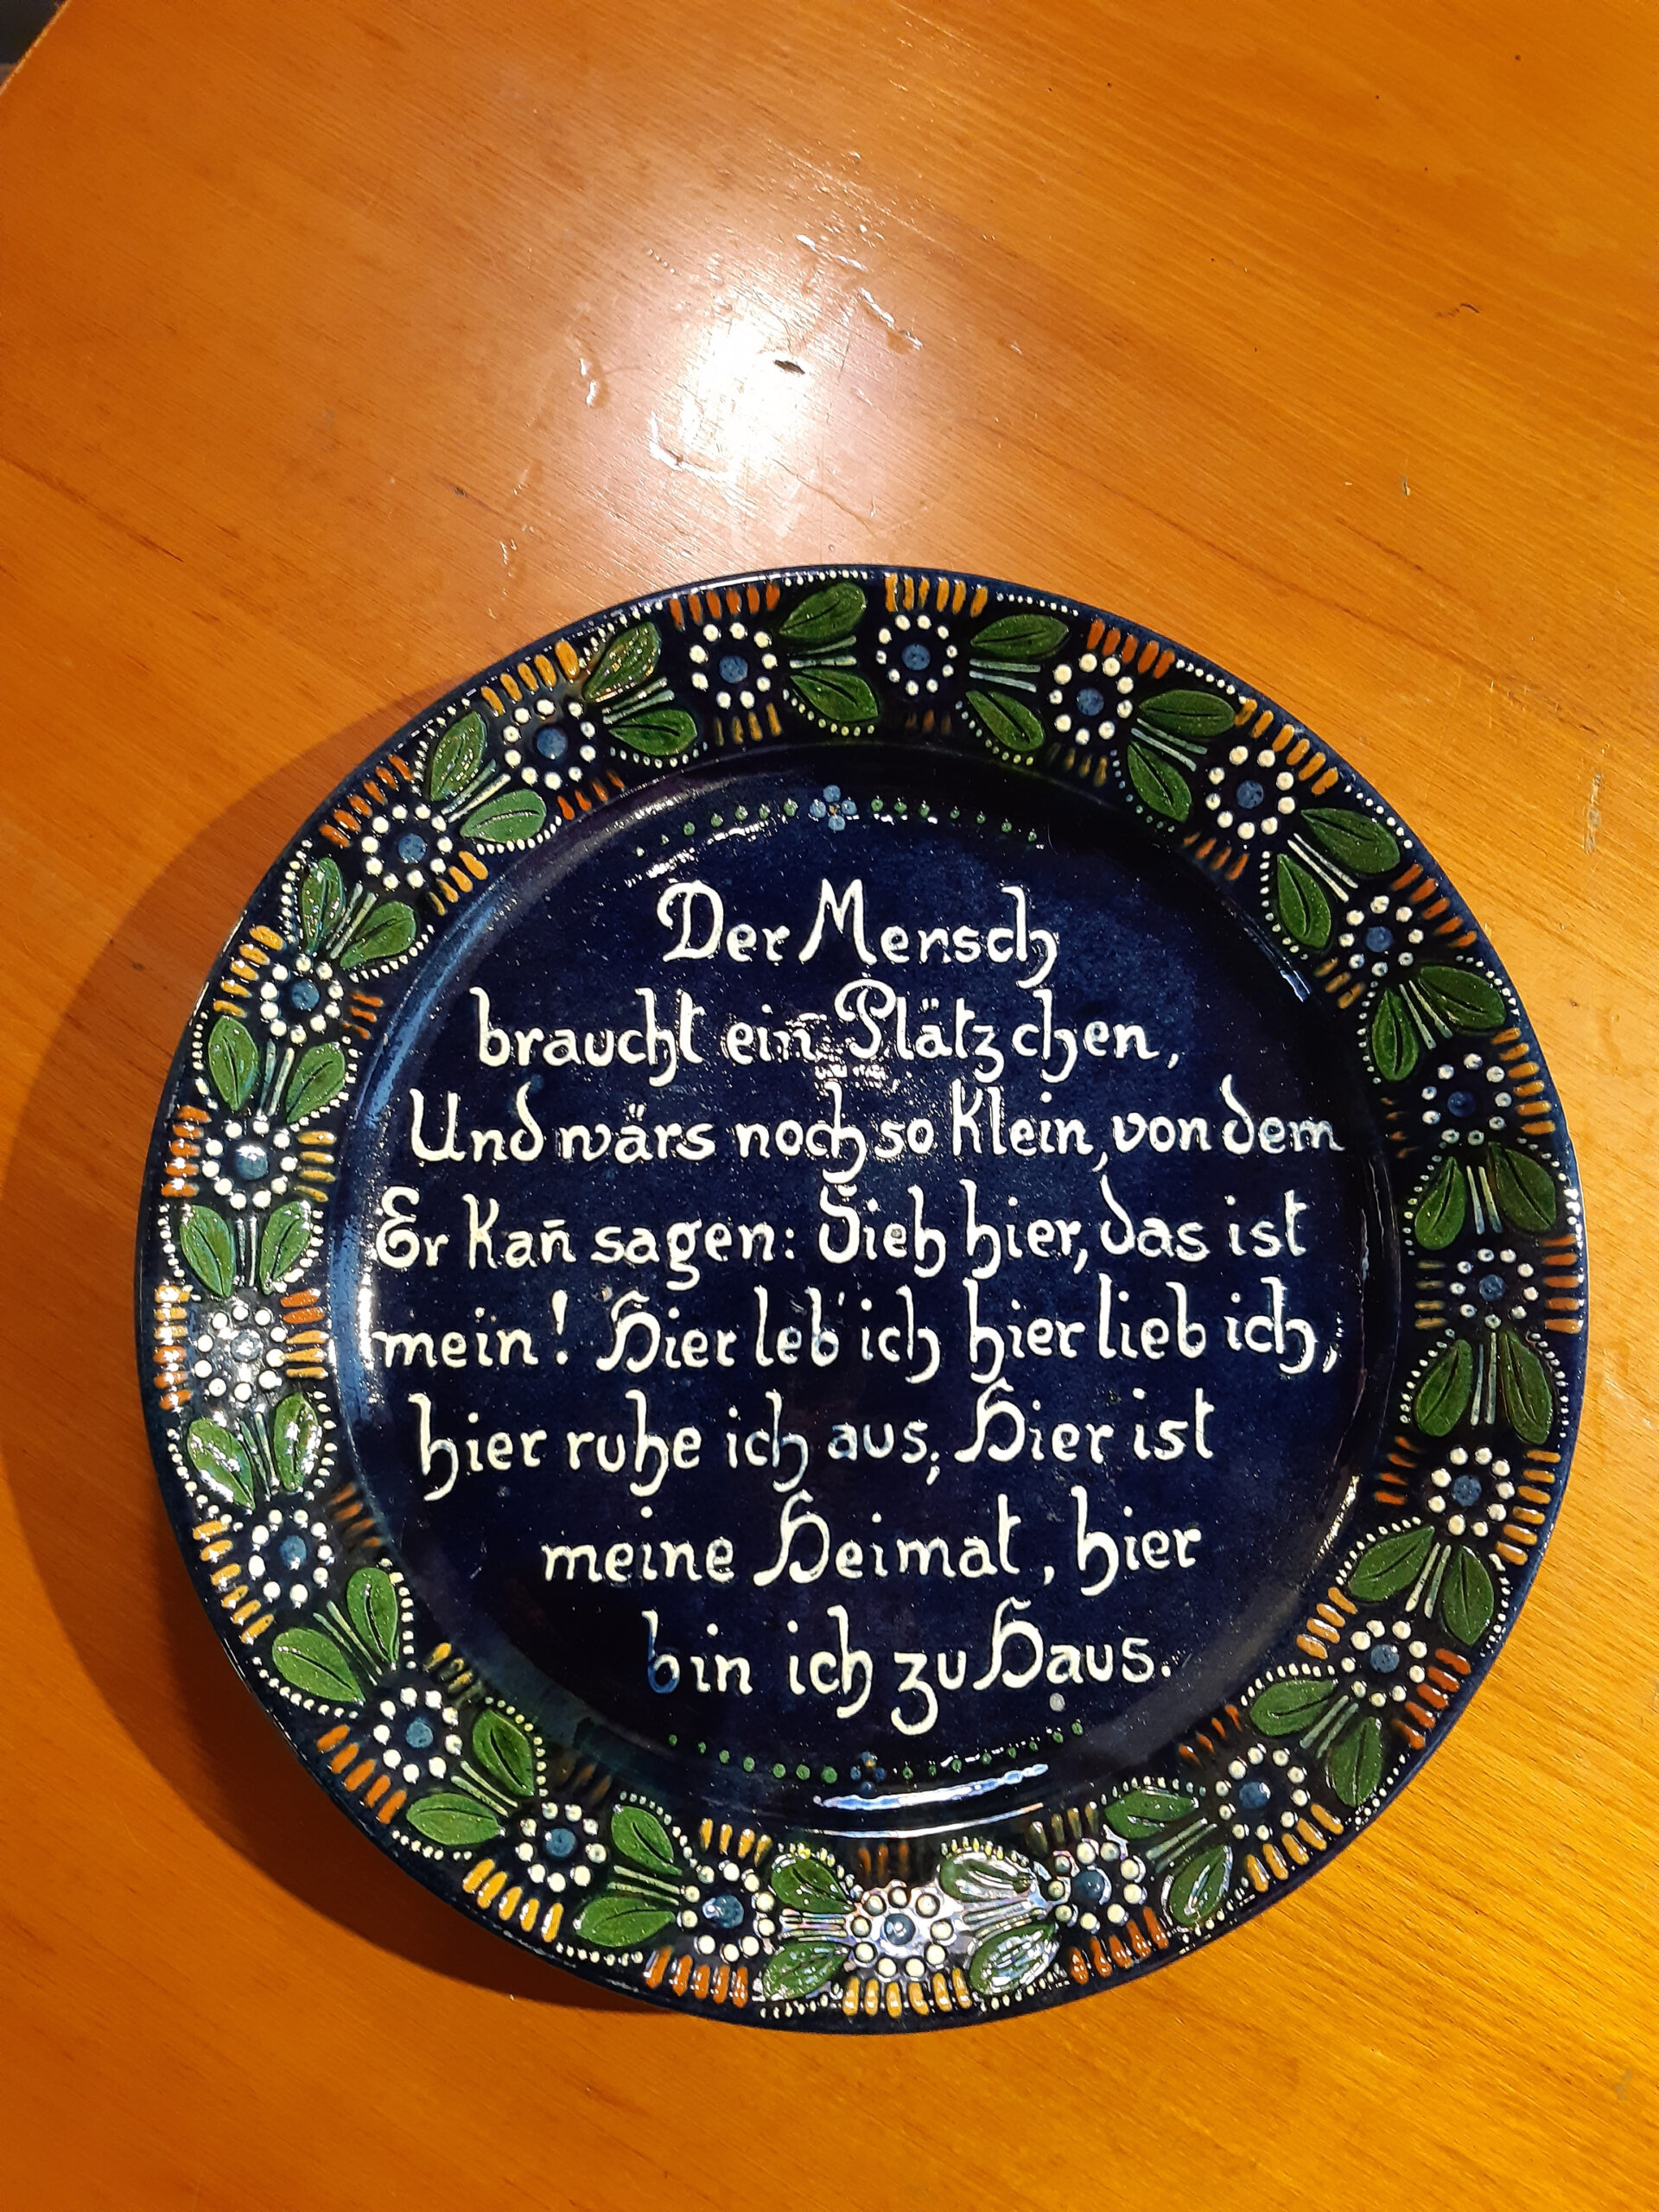 Der Mensch
braucht ein Plätzchen,
Und wärs noch so Klein, von dem
Er Kan̄ sagen: Sieh hier, das ist
mein! Hier leb' ich hier lieb ich,
hier ruhe ich aus; Hier ist
meine Heimat, hier
bin ich zu Haus.